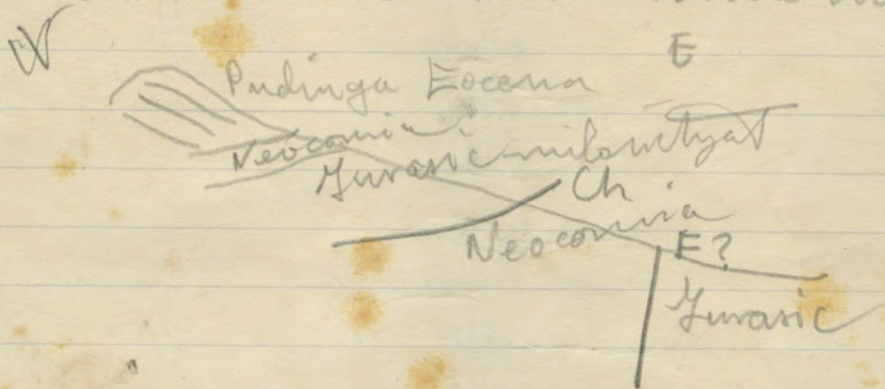 W E
Pudinga Eocena
Neocomia
Jurasic milonitzat
Ch
Neocomia
F?
Jurasic